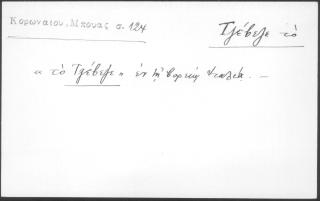 Κορωναίου, Μπούας σ. 124
Τζέβελε τὸ
" τὸ Τζέβελε " ἐν τῇ βορείῳ Ἰταλίᾳ. —